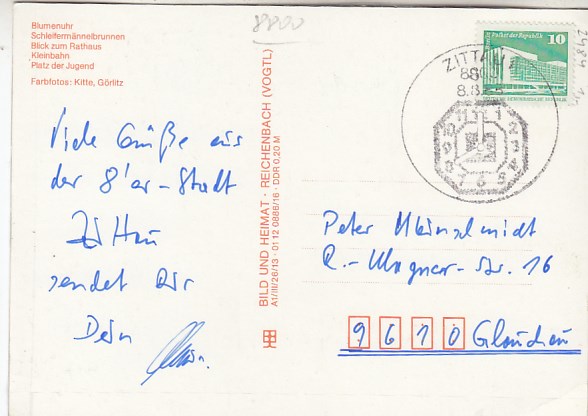 Blumenuhr
Schleifermännelbrunnen
Blick zum Rathaus
Kleinbahn
Platz der Jugend
Farbfotos: Kitte, Görlitz
8800
Viele Grüße aus
der 8'er-Stadt
Zittau
sendet Dir
Dein
BILD UND HEIMAT · REICHENBACH (VOGTL)
A1/III/26/13 · 01 12 0886/16 · DDR 0,20 M
Palast der Republik
10
DEUTSCHE DEMOKRATISCHE REPUBLIK
ZITTAU
880
8.8.
12
1
2
3
Peter Kleinschmidt
R.-Wagner-Str. 16
9610 Glauchau